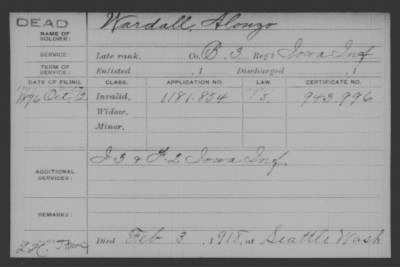 DEAD
NAME OF SOLDIER: Wardall, Alonzo
SERVICE: Late rank, Co. B. 3 Reg't Iowa Inf
TERM OF SERVICE: Enlisted , 1 Discharged , 1
DATE OF FILING. CLASS. APPLICATION NO. LAW. CERTIFICATE NO.
1896 Oct. 12 Invalid, 1181.854 943.996
Widow,
Minor,
ADDITIONAL SERVICES: I 3 & F. 2 Iowa Inf.
REMARKS:
Died Feb 3, 1918, at Seattle Wash